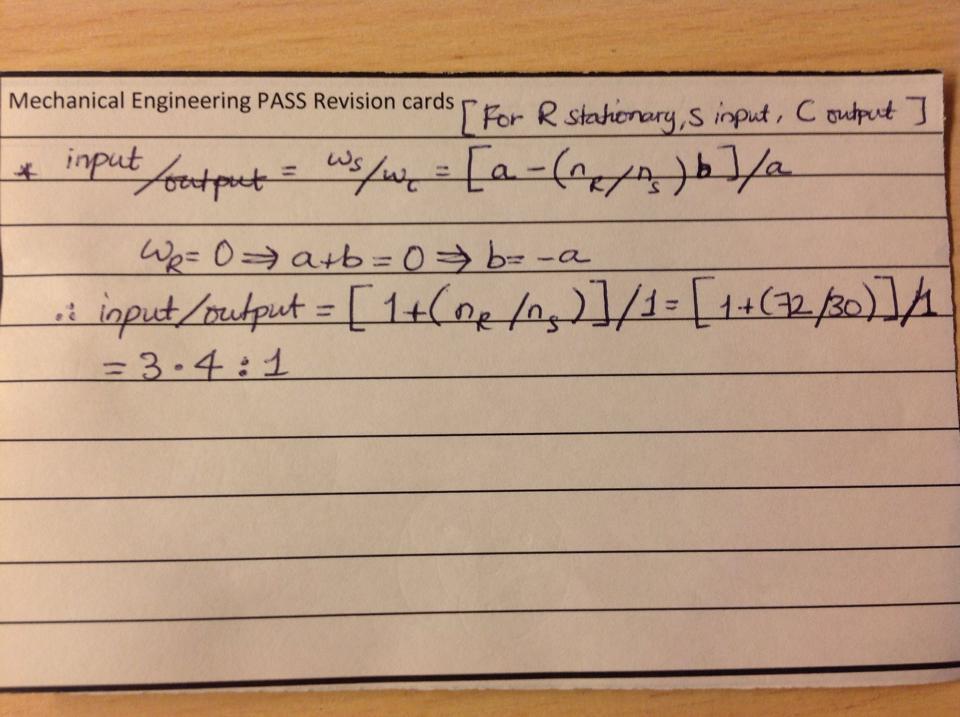 Mechanical Engineering PASS Revision cards [For R stationary, S input, C output]
* input/output = ωs/ωc = [a-(nR/ns)b]/a
ωR = 0 ⇒ a+b = 0 ⇒ b = -a
∴ input/output = [1+(nR/ns)]/1 = [1+(72/30)]/1
= 3·4 : 1